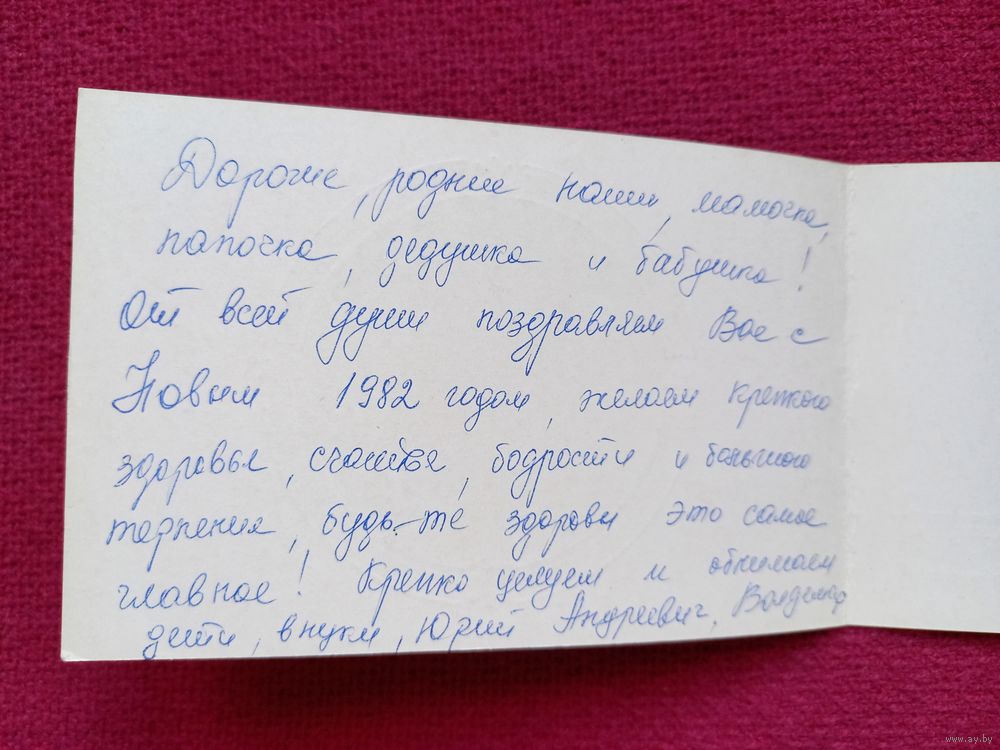 Дорогие, родные наши, мамочка,
папочка, дедушка и бабушка!
От всей души поздравляем Вас с
Новым 1982 годом, желаем крепкого
здоровья, счастья, бодрости и большого
терпения, будь-те здоровы это самое
главное! Крепко целуем и обнимаем
дети, внуки, Юрий Андреевич, Вольдемар
www.ay.by